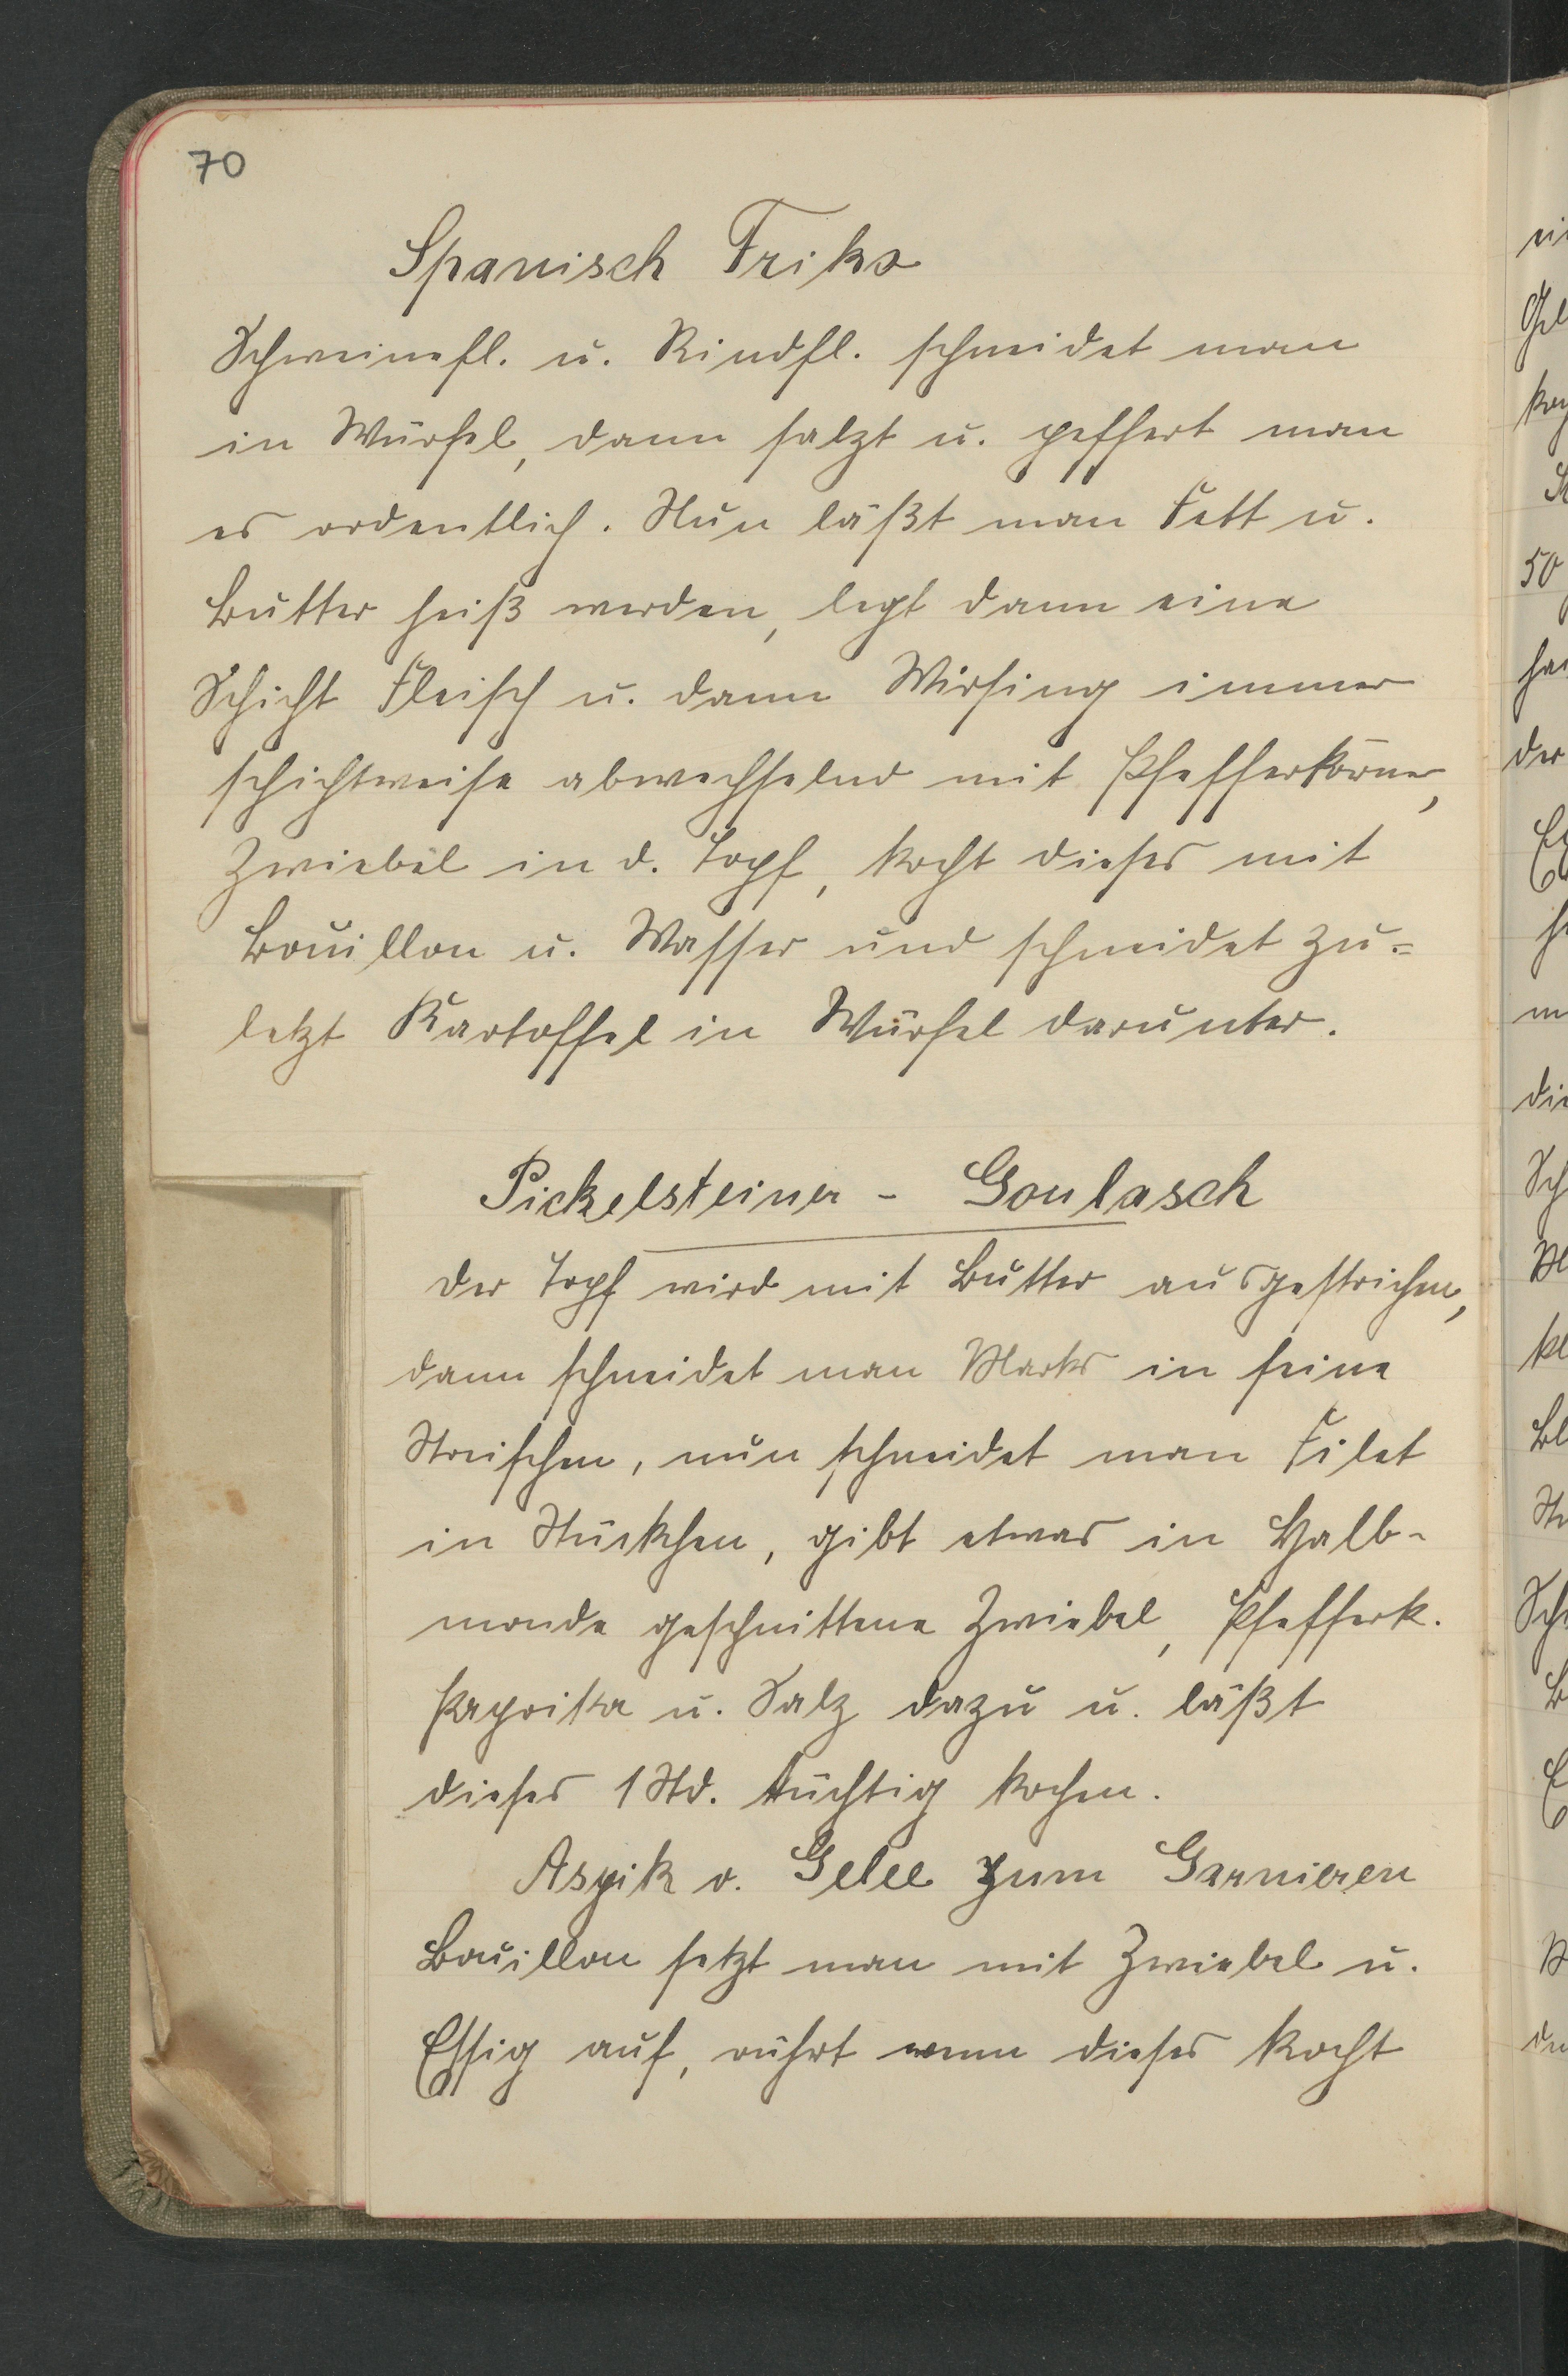 70
Spanisch Friko
Schweinefl. u. Rindfl. schneidet man
in Würfel, dann salzt u. pfeffert man
es ordentlich. Nun läßt man Fett u.
Butter heiß werden, legt dann eine
Schicht Fleisch u. dann Wirsing immer
schichtweise abwechselnd mit Pfefferkörner,
Zwiebel in d. Topf, kocht dieses mit
Bouillon u. Wasser und schneidet zu=
letzt Kartoffel in Würfel darunter.
Pickelsteiner - Goulasch
Der Topf wird mit Butter ausgestrichen,
dann schneidet man Marks in feine
Streifchen, nun schneidet man Filet
in Stückchen, gibt etwas in Halb-
monde geschnittene Zwiebel, Pfefferk.
Paprika u. Salz dazu u. läßt
dieses 1 Std. tüchtig kochen.
Aspik o. Gelee zum Garnieren
Bouillon setzt man mit Zwiebel u.
Essig auf, rührt wenn dieses kocht